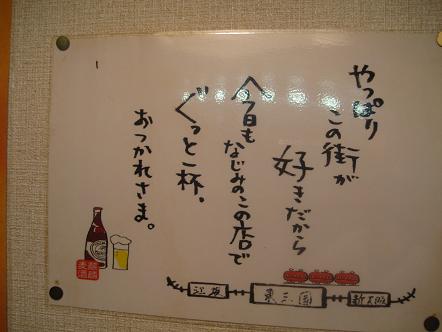 やっぱり
この街が
好きだから
今日も
なじみのこの店で
ぐっと一杯。
おつかれさま。
江坂
東三国
新大阪